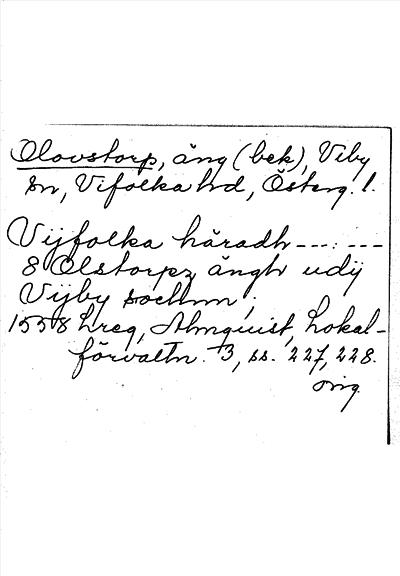 Olovstorp, äng (bek), Viby
sn, Vifolka hd, Österg. l.
Vijfolka häradh --- : ---
8 Olstorpz ängh udij
Vijby sochnn ;
1558 hreg, Almquist, Lokal-
förvaltn. 3, ss. 227, 228.
orig.